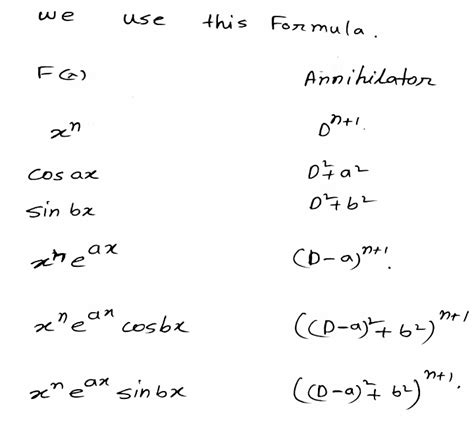 we use this Formula.
F(x) Annihilator
xⁿ Dⁿ⁺¹.
cos ax D²+a²
sin bx D²+b²
xⁿe^ax (D-a)ⁿ⁺¹.
xⁿe^ax cosbx ((D-a)²+b²)ⁿ⁺¹
xⁿe^ax sinbx ((D-a)²+b²)ⁿ⁺¹.